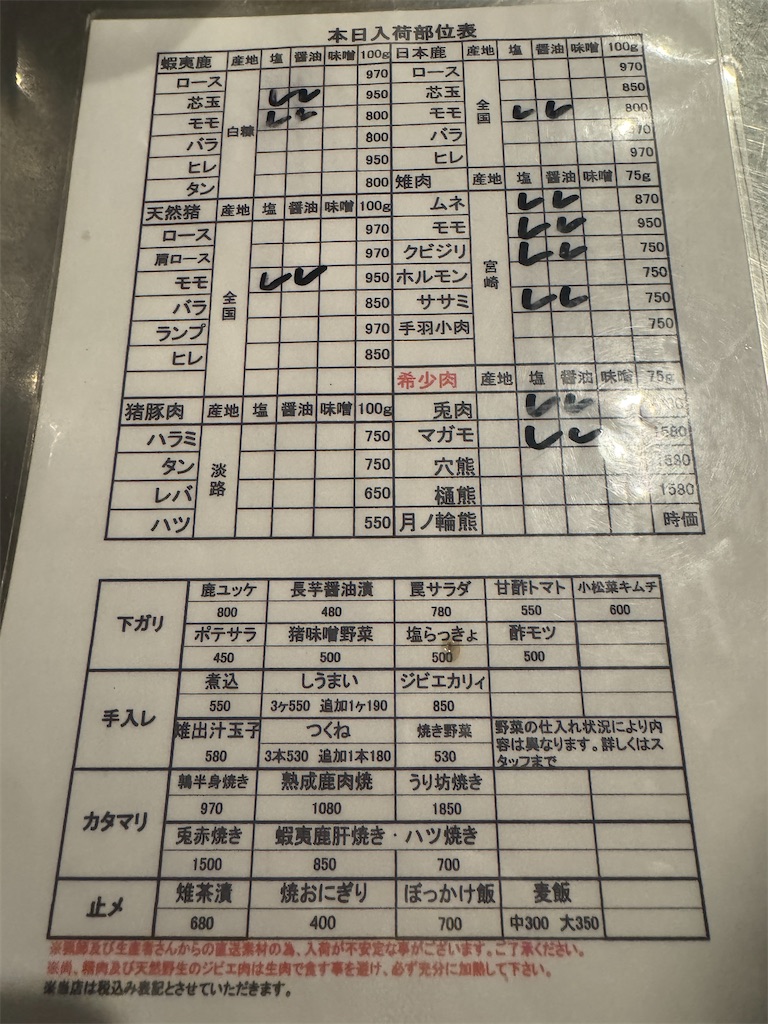 本日入荷部位表
蝦夷鹿 産地 塩 醤油 味噌 100g
ロース 970
芯玉 950
モモ 800
バラ 800
ヒレ 950
タン 800
白糠
天然猪 産地 塩 醤油 味噌 100g
ロース 970
肩ロース 970
モモ 950
バラ 850
ランプ 970
ヒレ 850
全国
猪豚肉 産地 塩 醤油 味噌 100g
ハラミ 750
タン 750
レバ 650
ハツ 550
淡路
日本鹿 産地 塩 醤油 味噌 100g
ロース 970
芯玉 850
モモ 800
バラ 970
ヒレ 970
全国
雉肉 産地 塩 醤油 味噌 75g
ムネ 870
モモ 950
クビジリ 750
ホルモン 750
ササミ 750
手羽小肉 750
宮崎
希少肉 産地 塩 醤油 味噌 75g
兎肉
マガモ 1580
穴熊 1580
樋熊 1580
月ノ輪熊 時価
下ガリ
鹿ユッケ 長芋醤油漬 罠サラダ 甘酢トマト 小松菜キムチ
800 480 780 550 600
ポテサラ 猪味噌野菜 塩らっきょ 酢モツ
450 500 500 500
手入レ
煮込 しうまい ジビエカリィ
550 3ヶ550 追加1ヶ190 850
雉出汁玉子 つくね 焼き野菜 野菜の仕入れ状況により内
容は異なります。詳しくはス
タッフまで
580 3本530 追加1本180 530
カタマリ
鶉半身焼き 熟成鹿肉焼 うり坊焼き
970 1080 1850
兎赤焼き 蝦夷鹿肝焼き・ハツ焼き
1500 850 700
止メ
雉茶漬 焼おにぎり ぼっかけ飯 麦飯
680 400 700 中300 大350
※猟師及び生産者さんからの直送素材の為、入荷が不安定な事がございます。ご了承ください。
※尚、精肉及び天然野生のジビエ肉は生肉で食す事を避け、必ず充分に加熱して下さい。
※当店は税込み表記とさせていただきます。